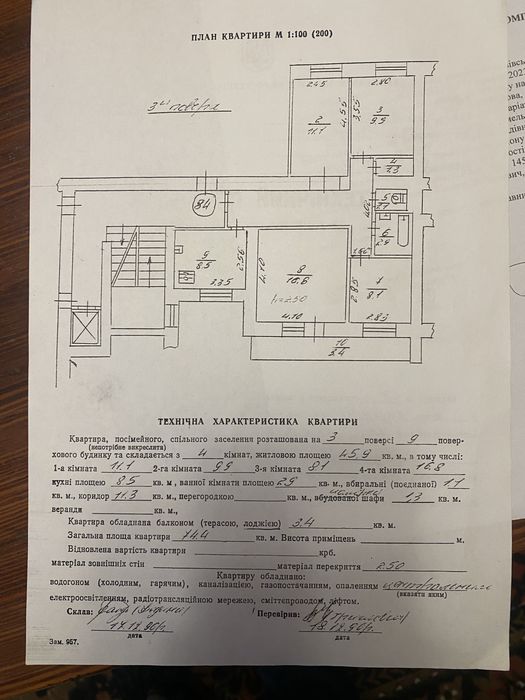 ПЛАН КВАРТИРИ М 1:100 (200)
3й поверх
2.45
2.80
2
11.1
4.55
3.55
3
9.9
4
1.3
84
5
1.1
4.02
6
2.9
9
8.5
2.56
3.35
8
16.8
4.10
h=2.50
4.10
7
8.1
2.85
2.83
10
3.4
ТЕХНІЧНА ХАРАКТЕРИСТИКА КВАРТИРИ
Квартира, посімейного, спільного заселення розташована на 3 поверсі 9 повер-
(непотрібне викреслити)
хового будинку та складається з 4 кімнат, житловою площею 45.9 кв. м., в тому числі:
1-а кімната 11.1 2-га кімната 9.9 3-я кімната 8.1 4-та кімната 16.8
кухні площею 8.5 кв. м, ванної кімнати площею 2.9 кв. м., вбиральні (поєднаної) 1.1
кв. м., коридор 11.3 кв. м., перегородкою кв. м., вбудованої шафи 1.3 кв. м.
веранди кв. м.,
Квартира обладнана балконом (терасою, лоджією) 3.4 кв. м.
Загальна площа квартири 74.4 кв. м. Висота приміщень м.
Відновлена вартість квартири крб.
матеріал зовнішніх стін матеріал перекриття 2.50
Квартиру обладнано:
водогоном (холодним, гарячим), каналізацією, газопостачанням, опаленням центральним
(вказати яким)
електроосвітленням, радіотрансляційною мережею, сміттепроводом, ліфтом.
Склав: Перевірив:
17.12.96р. 18.12.96р.
дата дата
Зам. 957.